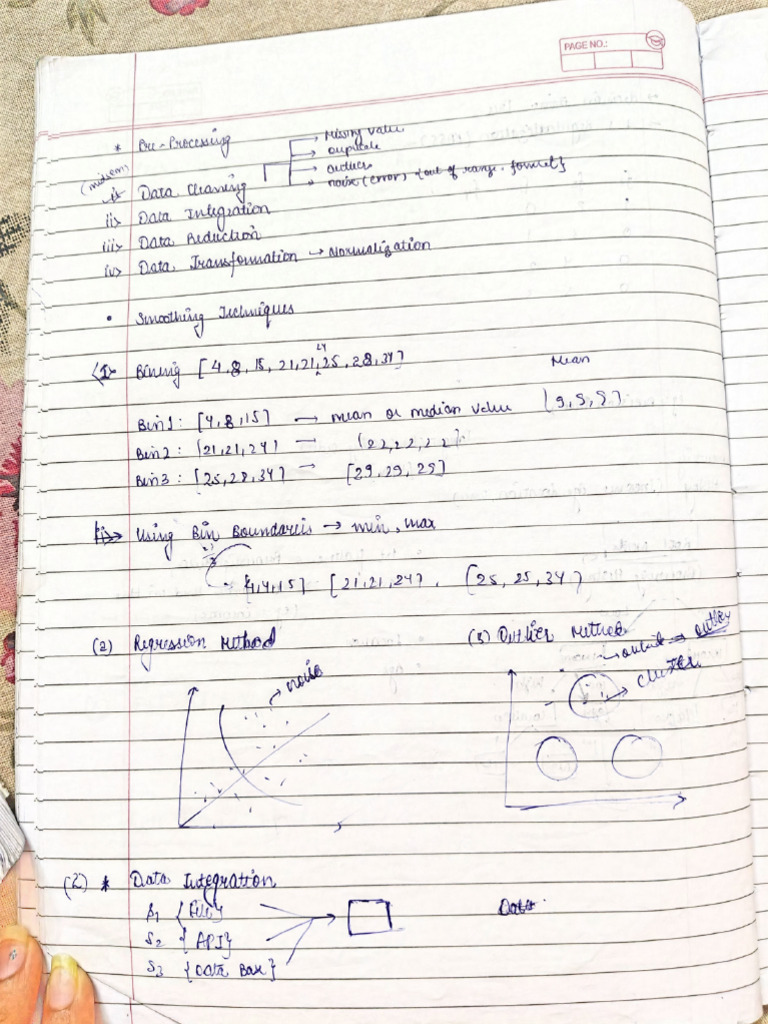 PAGE NO.:
* Pre-Processing
→ Missing value
→ duplicate
→ outlier
• noise (error) {out of range. format}
(midsem)
i> Data Cleaning
ii> Data Integration
iii> Data Reduction
iv> Data Transformation → Normalization
• Smoothing Techniques
24
<1> Bining [4,8,15,21,21,25,28,34]
Mean
Bin1: [4,8,15] → mean or median value [9,9,9]
Bin2: [21,21,24] — [22,22,22]
Bin3: [25,28,34] → [29,29,29]
ii>> Using Bin Boundareis → min, max
→ [4,4,15] [21,21,24], [25,25,34]
(2) Regression Method
(3) Outlier Method
→ noise
→ outlier
→ cluster
(2) * Data Integration
S1 {File}
S2 {API}
S3 {Data Base}
Data